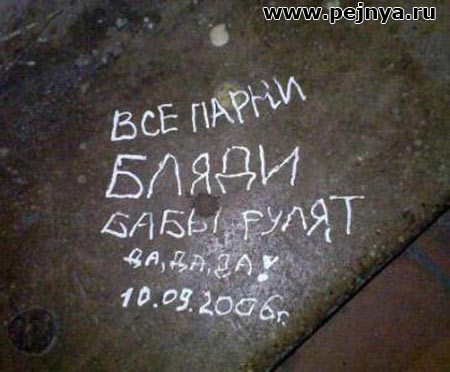 www.pejnya.ru
ВСЕ ПАРНИ
БЛЯДИ
БАБЫ РУЛЯТ
ДА, ДА, ДА!
10.09.2006г.